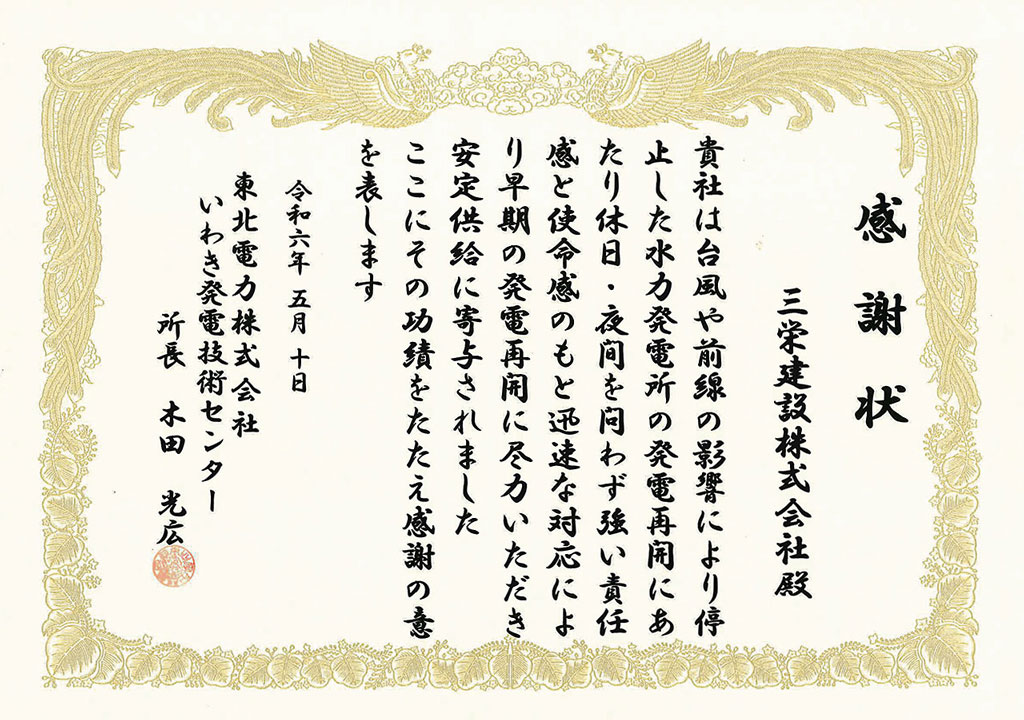 感謝状
三栄建設株式会社殿
貴社は台風や前線の影響により停
止した水力発電所の発電再開にあ
たり休日・夜間を問わず強い責任
感と使命感のもと迅速な対応によ
り早期の発電再開に尽力いただき
安定供給に寄与されました
ここにその功績をたたえ感謝の意
を表します
令和六年 五月 十日
東北電力株式会社
いわき発電技術センター
所長 木田 光広